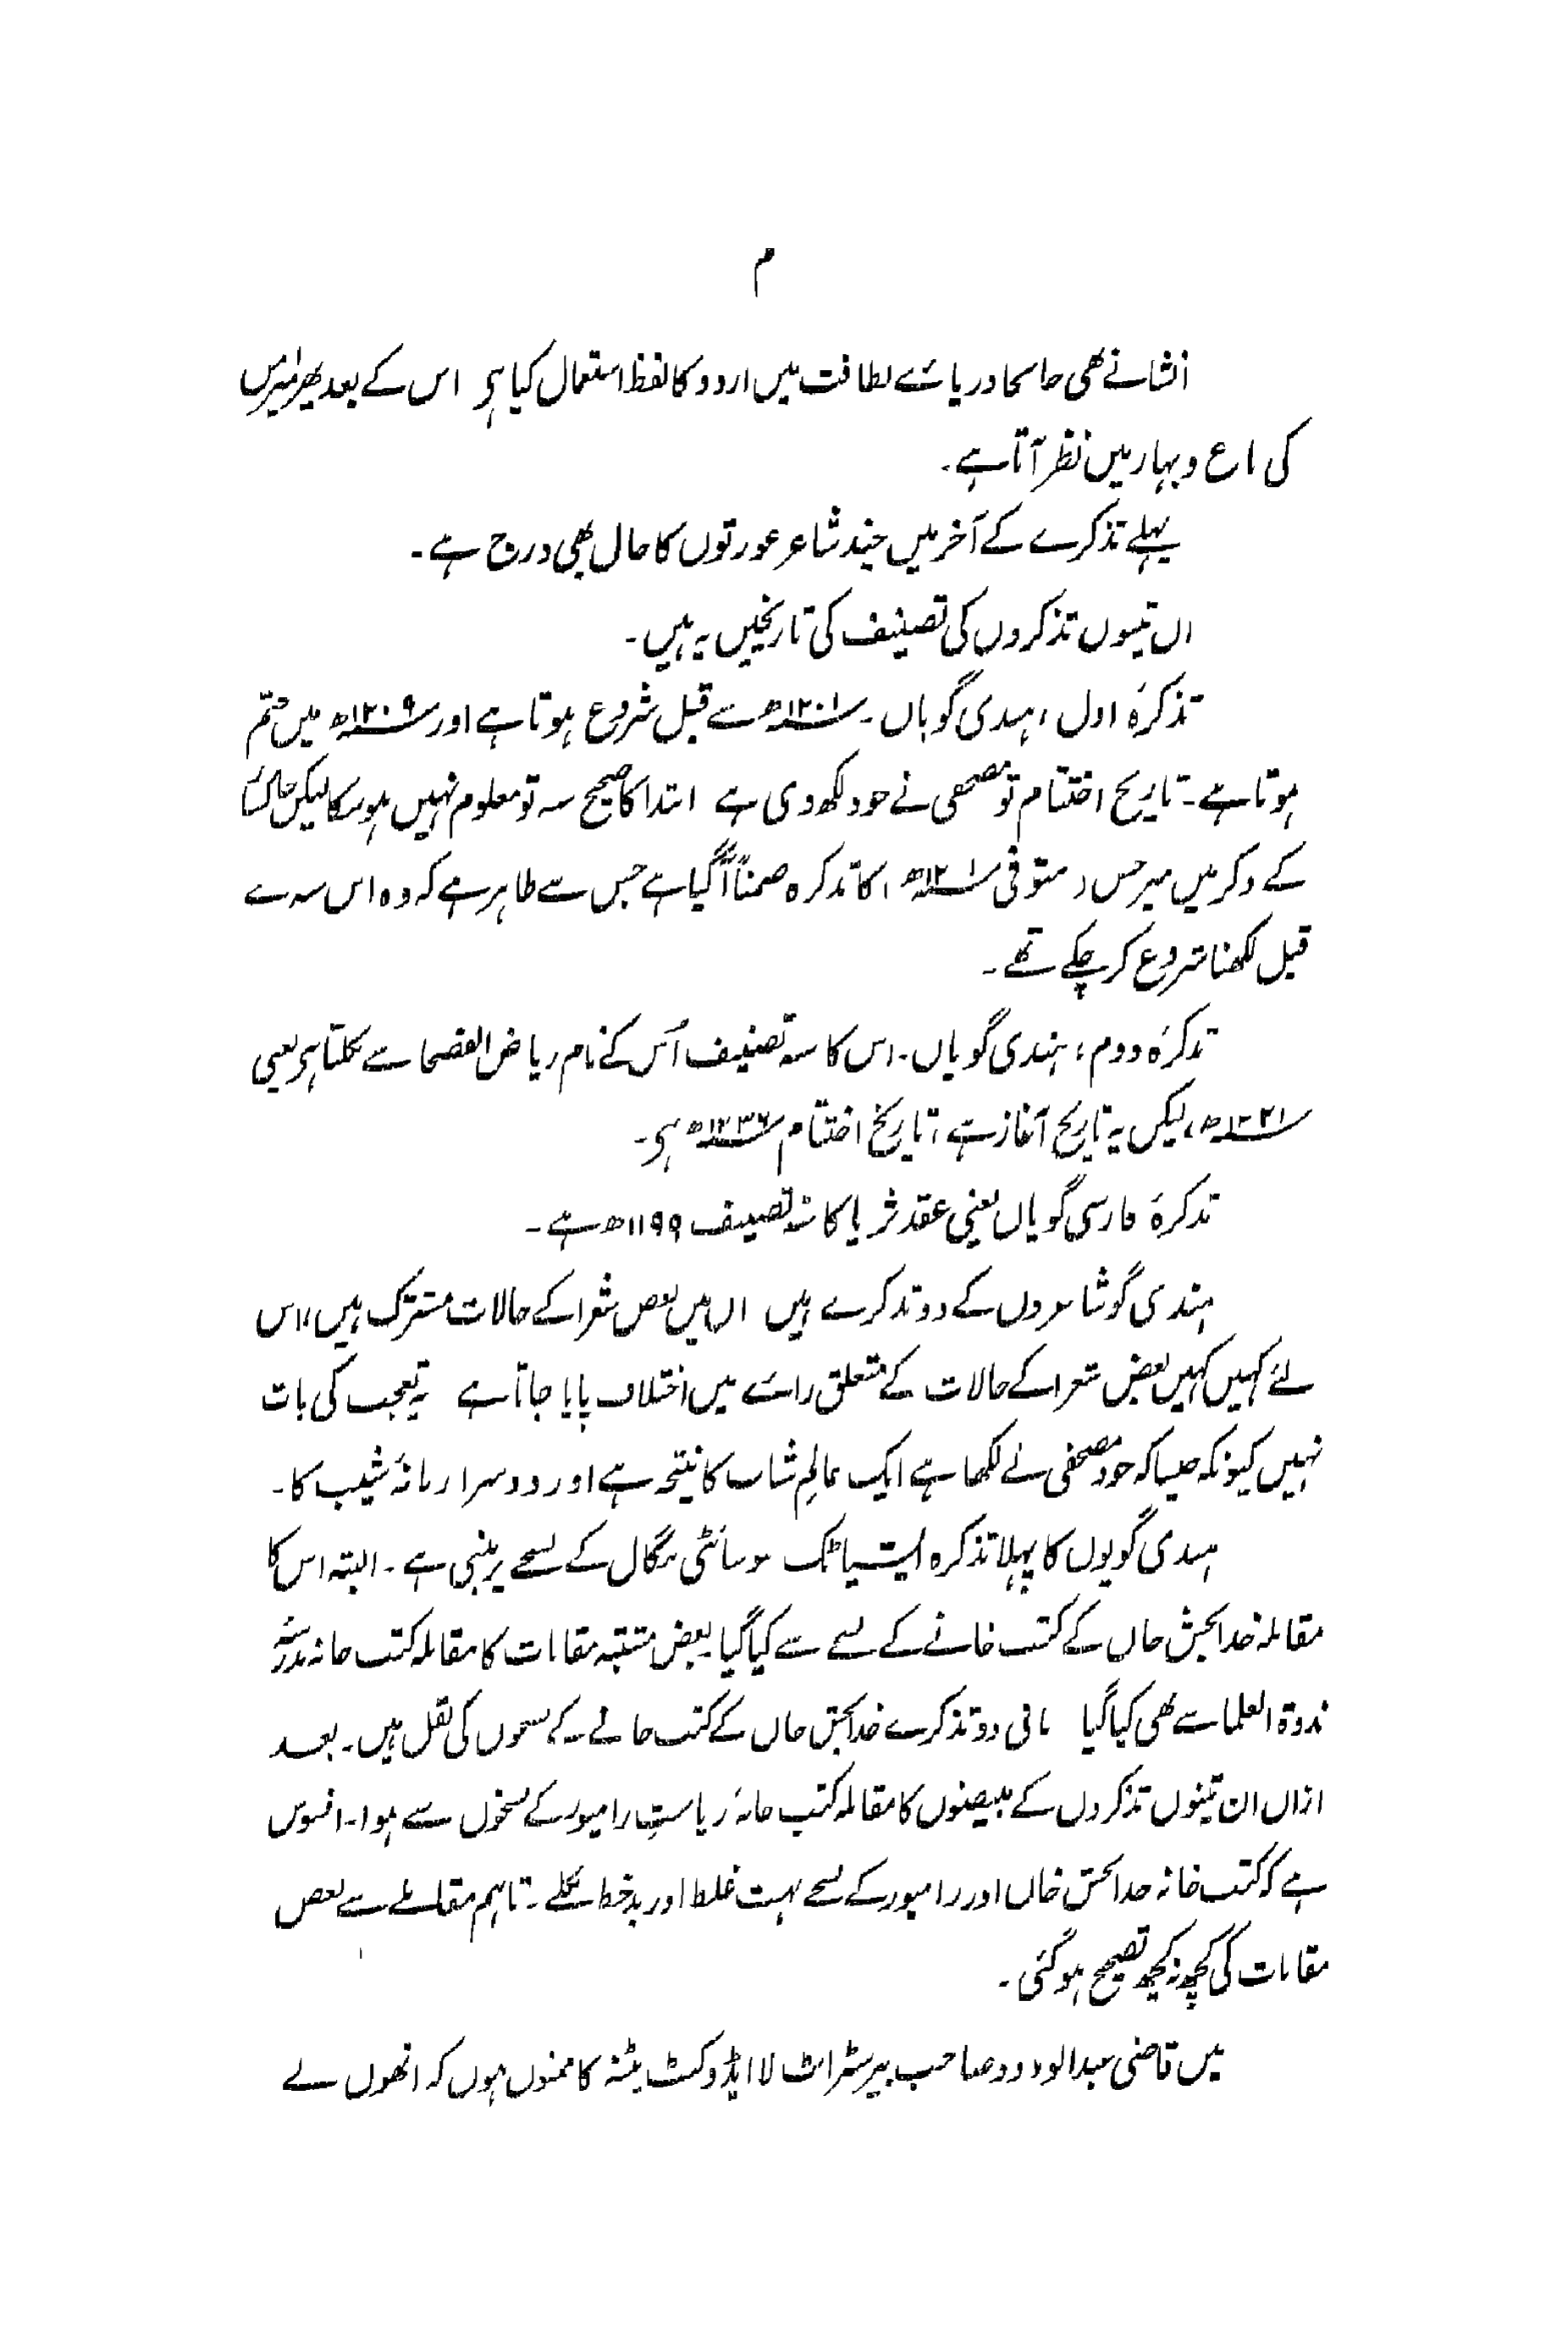 م
انشا نے بھی جا بجا دریائے لطافت میں اردو کا لفظ استعمال کیا ہی اس کے بعد پھر میرامن
کی باغ و بہار میں نظر آتا ہے۔
پہلے تذکرے کے آخر میں چند شاعر عورتوں کا حال بھی درج ہے۔
ان تینوں تذکروں کی تصنیف کی تاریخیں یہ ہیں۔
تذکرۂ اول، ہندی گویاں۔ ۱۲۰۱ھ سے قبل شروع ہوتا ہے اور ۱۲۰۹ھ میں ختم
ہوتا ہے۔ تاریخ اختتام تو مصحفی نے خود لکھ دی ہے ابتدا کا صحیح سنہ تو معلوم نہیں ہو سکا لیکن
کے ذکر میں میر حسن (متوفی ۱۲۰۱ھ) کا تذکرہ ضمناً آ گیا ہے جس سے ظاہر ہے کہ وہ اس سنہ سے
قبل لکھنا شروع کر چکے تھے۔
تذکرۂ دوم، ہندی گویاں۔ اس کا سنہ تصنیف اُس کے نام ریاض الفصحا سے نکلتا ہی یعنی
۱۲۲۱ھ، لیکن یہ تاریخ آغاز ہے، تاریخ اختتام ۱۲۳۶ھ ہی۔
تذکرۂ فارسی گویاں یعنی عقد ثریا کا سنہ تصنیف ۱۱۹۹ھ ہے۔
ہندی گو شاعروں کے دو تذکرے ہیں ان میں بعض شعرا کے حالات مشترک ہیں، اس
لئے کہیں کہیں بعض شعرا کے حالات کے متعلق رائے میں اختلاف پایا جاتا ہے یہ تعجب کی بات
نہیں کیونکہ جیسا کہ خود مصحفی نے لکھا ہے ایک عالمِ شباب کا نتیجہ ہے اور دوسرا زمانۂ شیب کا۔
ہندی گویوں کا پہلا تذکرہ ایشیاٹک سوسائٹی بنگال کے نسخے پر مبنی ہے۔ البتہ اس کا
مقابلہ خدا بخش خاں کے کتب خانے کے نسخے سے کیا گیا بعض مشتبہ مقامات کا مقابلہ کتب خانہ مدرسۂ
ندوۃ العلما سے بھی کیا گیا باقی دو تذکرے خدا بخش خاں کے کتب خانے کے نسخوں کی نقل ہیں۔ بعد
ازاں ان تینوں تذکروں کے مبیضوں کا مقابلہ کتب خانۂ ریاستِ رامپور کے نسخوں سے ہوا۔ افسوس
ہے کہ کتب خانہ خدا بخش خاں اور رامپور کے نسخے بہت غلط اور بدخط نکلے۔ تاہم مقابلے سے بعض
مقامات کی کچھ نہ کچھ تصحیح ہو گئی۔
میں قاضی عبدالودود صاحب بیرسٹر اٹ لا ایڈوکٹ پٹنہ کا ممنوں ہوں کہ انھوں نے